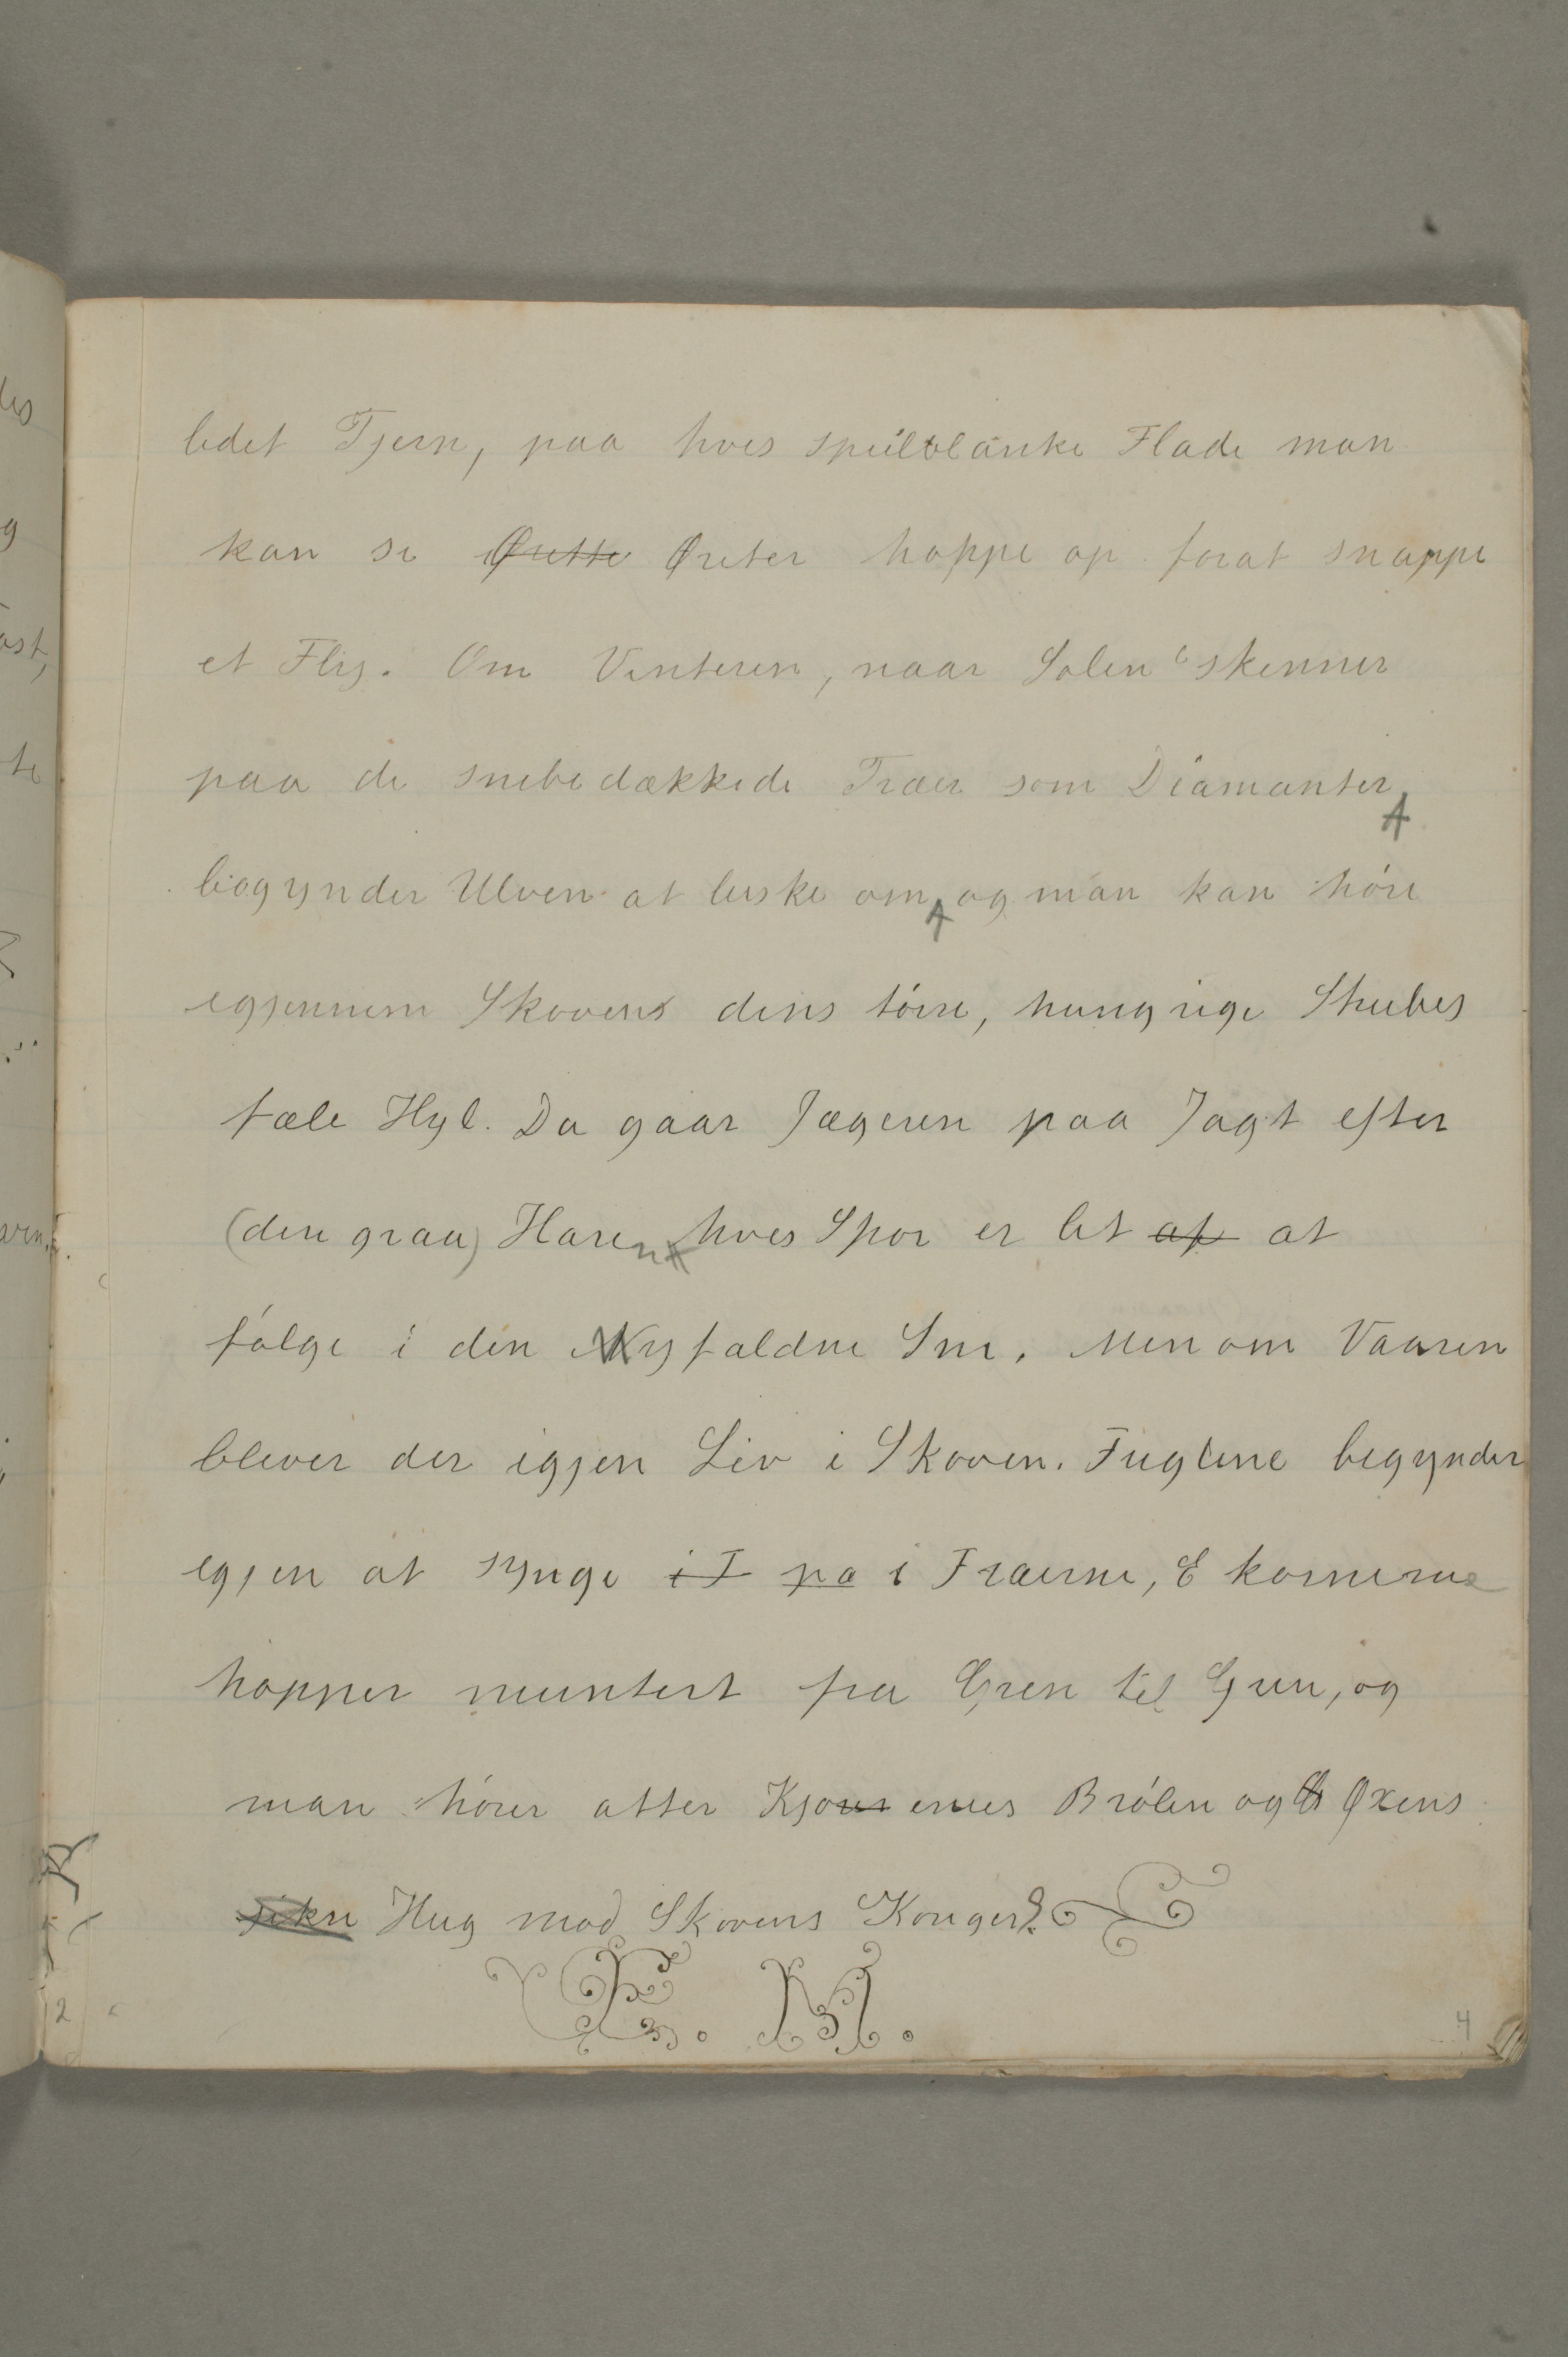 ledet Tjern, paa hves speilblanke Flade man
kan se Ørette Øreter hoppe op forat snappe
et Flig. Om Vinteren, naar Solen skinner
paa de snebedækkede Træer som Diamanter,
begynder Ulven at luske om, og man kan höre
igjennem Skovens dens törre, hungrige Strubes
fæle Hyl. Da gaar Jægeren paa Jagt efter
(den graa) Haren, hves Spor er let af at
fölge i den Nyfaldne Sne. Men om Vaaren
bliver der igjen Liv i Skoven. Fuglene begynder
igjen at synge i T pa i Træerne, Ekornerne
hopper muntert fra Gren til Gren, og
man hörer atter Kjørernes Brölen og Øxens
sikre Hug mod Skovens Konger.
E. M.
4
des
g
ost,
te
2